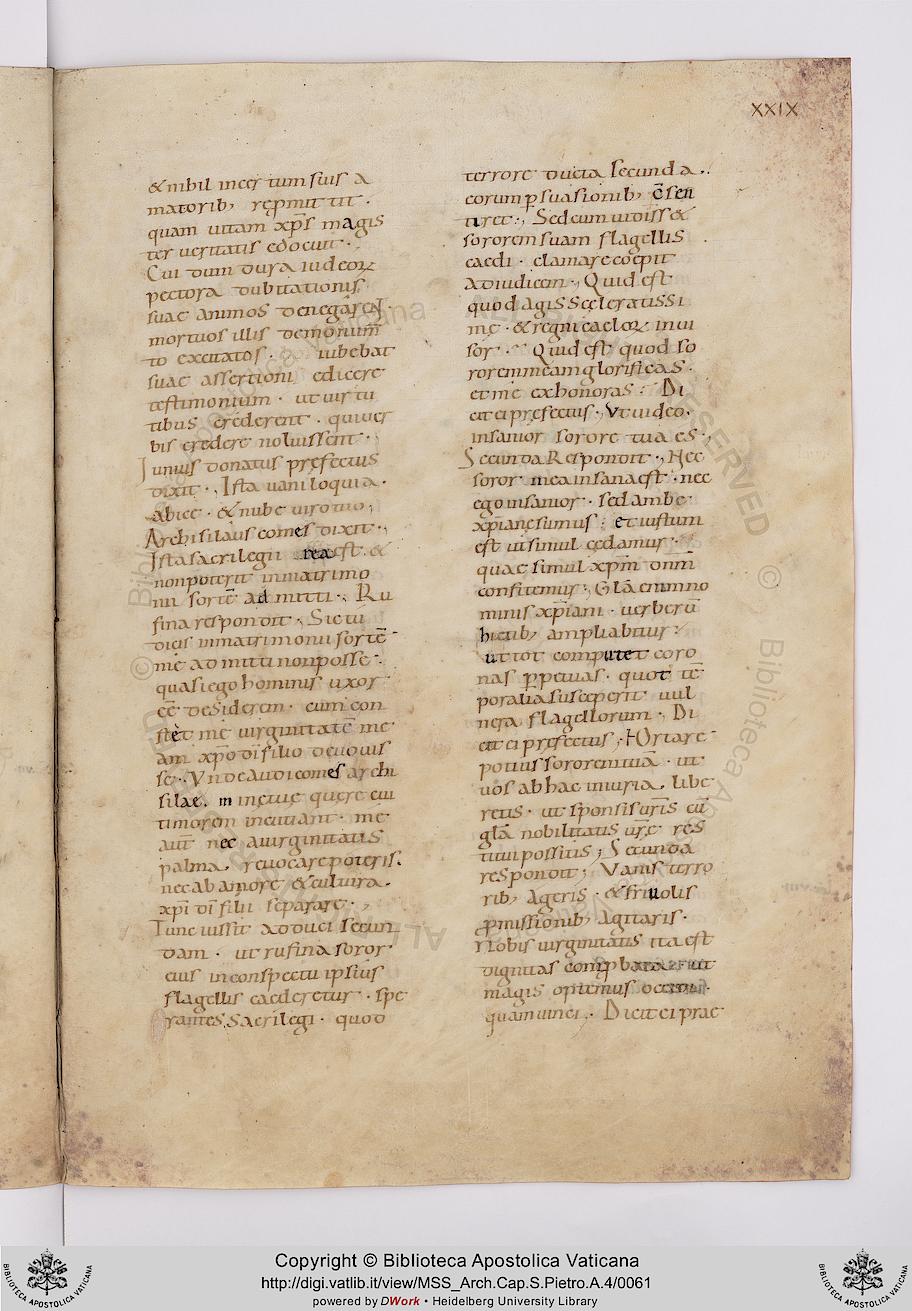 XXIX
& nihil incertum suis a
matorib; repmittit.
quam vitam xp̄s magis
ter veritatis edocuit.
Cui dum dura iudeoꝝ
pectora dubitationis
suae animos denegarent.
mortuos illis demonum̄
to excitatos. iubebat
suae assertioni edicere
testimonium. ut virtu
tibus crederent. qui ver
bis credere noluissent.
Iunius donatus prefectus
dixit., Ista vaniloquia.
abice. & nube viro tuo,
Archisilaus comes dixit.,
Ista sacrilegii rea est. &
non poterit in matrimo
nii sortē admitti., Ru
fina respondit., Sic tu
dicis in matrimonii sortē
me admitti non posse.
quasi ego hominis uxor
eē desiderem. cum con
stet me virginitatē me
am xp̄o dī filio devovis
se., Unde audi comes archi
silae. in me tuę querę cui
timorem incutiant. me
aut̄ nec a virginitatis
palma. revocare poteris.
nec ab amore & cultura.
xp̄i dī filii separare.,
Tunc iussit adduci secun
dam. ut rufina soror
eius in conspectu ipsius
flagellis caederetur. spe
rantes sacrilegi. quod
terrore ducta secunda.,
eorum psuasionib; c̄sen
tiret., Sed cum vidiss&
sororem suam flagellis
caedi. clamare coepit
ad iudicem., Quid est
quod agis sceleratissi
me. & regni caeloꝝ invi
sor. Quid est quod so
rorem meam glorificas.
et me exhonoras. Di
cit ei prefectus., Ut video.
insanior sorore tua es.,
Secunda Respondit., Nec
soror mea insana est. nec
ego insanior. sed ambe
xp̄ianę sumus. et iustum
est ut simul cędamus.
quae simul xp̄m om̄m
confitemur., Glā enim no
minis xp̄iani. verberū
hictib; ampliabitur.
ut tot computet coro
nas ppetuas. quot tē
poralia susceperit vul
nera flagellorum. Di
cit ei prefectus., Hortare
potius sororem tuā. ut
vos ab hac iniuria. libe
retis. ut sponsis vr̄is cū
glā nobilitatis vr̄ę res
titui possitis., Secunda
respondit., Vanis terro
rib; ageris. & frivolis
pmissionib; agitaris.
Nobis virginitatis ita est
dignitas compbata. ut
magis optemus occidi.
quam vinci., Dicit ei prae
Copyright © Biblioteca Apostolica Vaticana
http://digi.vatlib.it/view/MSS_Arch.Cap.S.Pietro.A.4/0061
powered by DWork • Heidelberg University Library